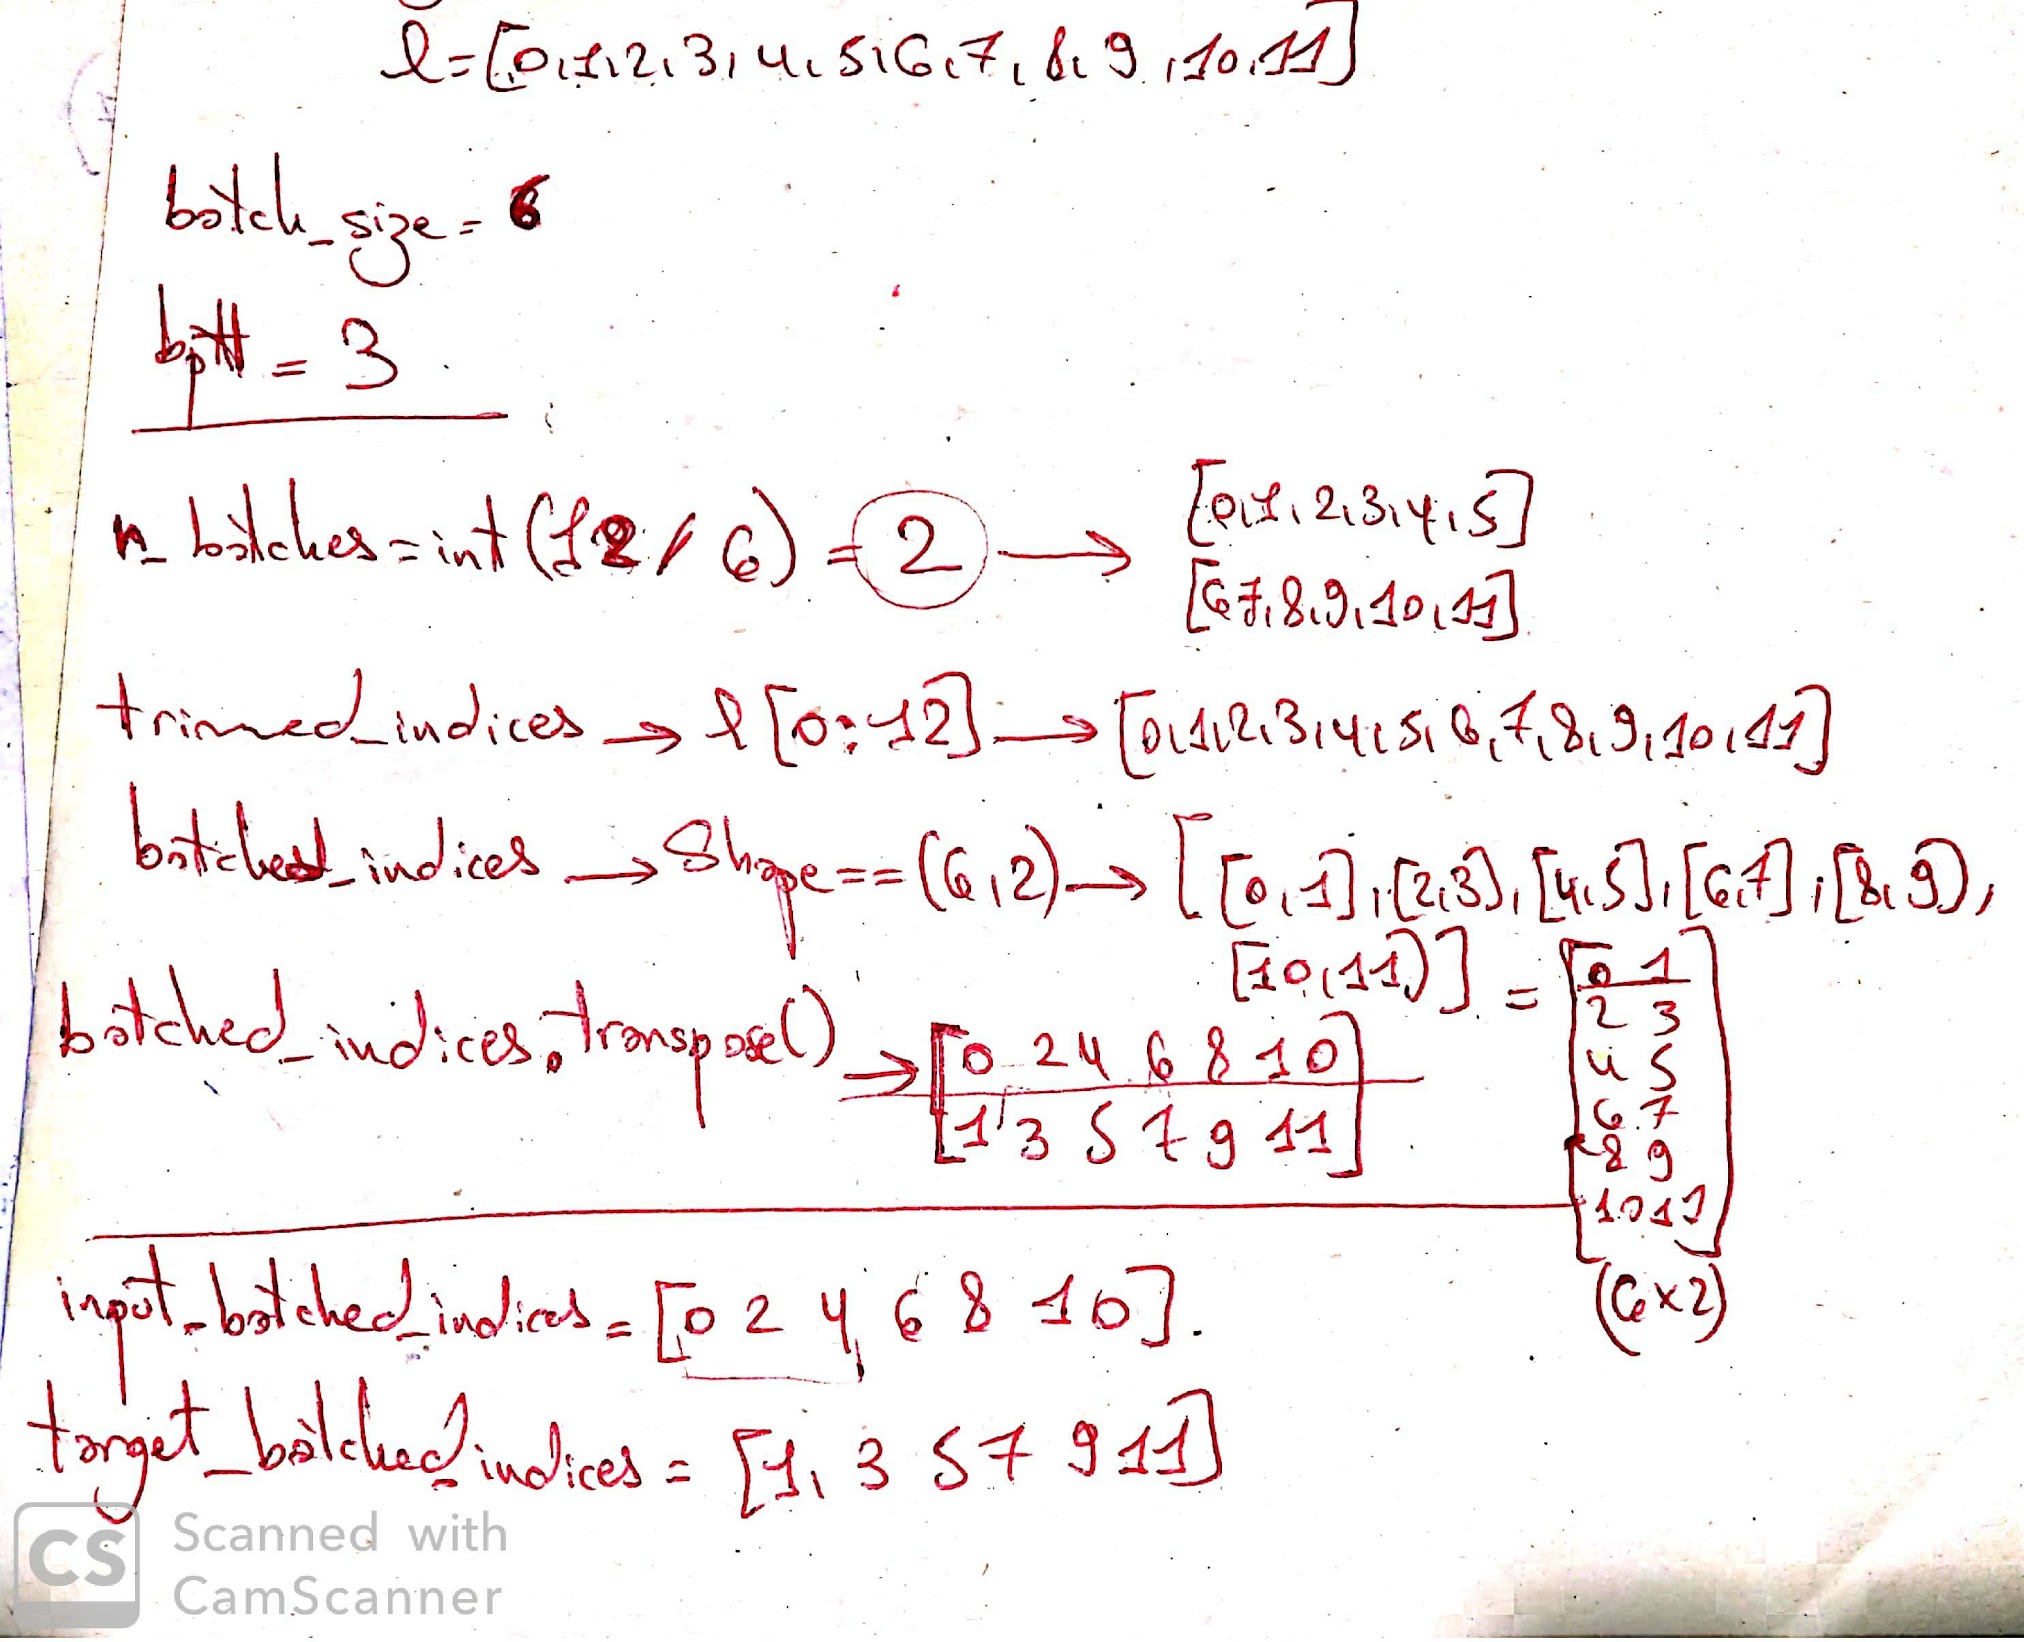 l=[0,1,2,3,4,5,6,7,8,9,10,11]
batch_size = 6
bptt = 3
n_batches = int(12/6) = 2 → [0,1,2,3,4,5]
[6,7,8,9,10,11]
trimmed_indices → l[0:12] → [0,1,2,3,4,5,6,7,8,9,10,11]
batched_indices → Shape==(6,2) → [[0,1],[2,3],[4,5],[6,7],[8,9],
[10,11]] = [0 1
2 3
4 5
6 7
8 9
10 11]
(6x2)
batched_indices.transpose() → [0 2 4 6 8 10]
[1 3 5 7 9 11]
input_batched_indices = [0 2 4 6 8 10].
target_batched_indices = [1, 3 5 7 9 11]
CS Scanned with
CamScanner